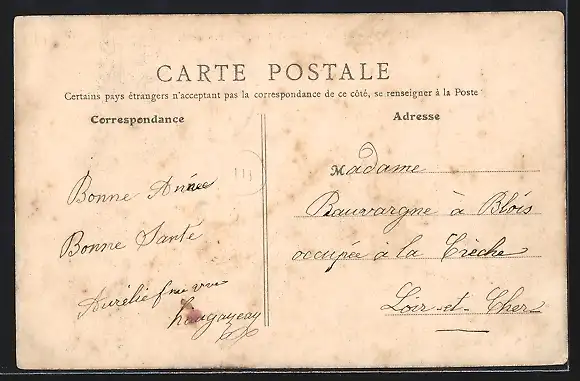 CARTE POSTALE
Certains pays étrangers n'acceptant pas la correspondance de ce côté, se renseigner à la Poste
Correspondance
Adresse
Bonne Année
Bonne Santé
Aurélie
Madame
Bauvargne à Blois
occupée à la Crèche
Loir-et-Cher